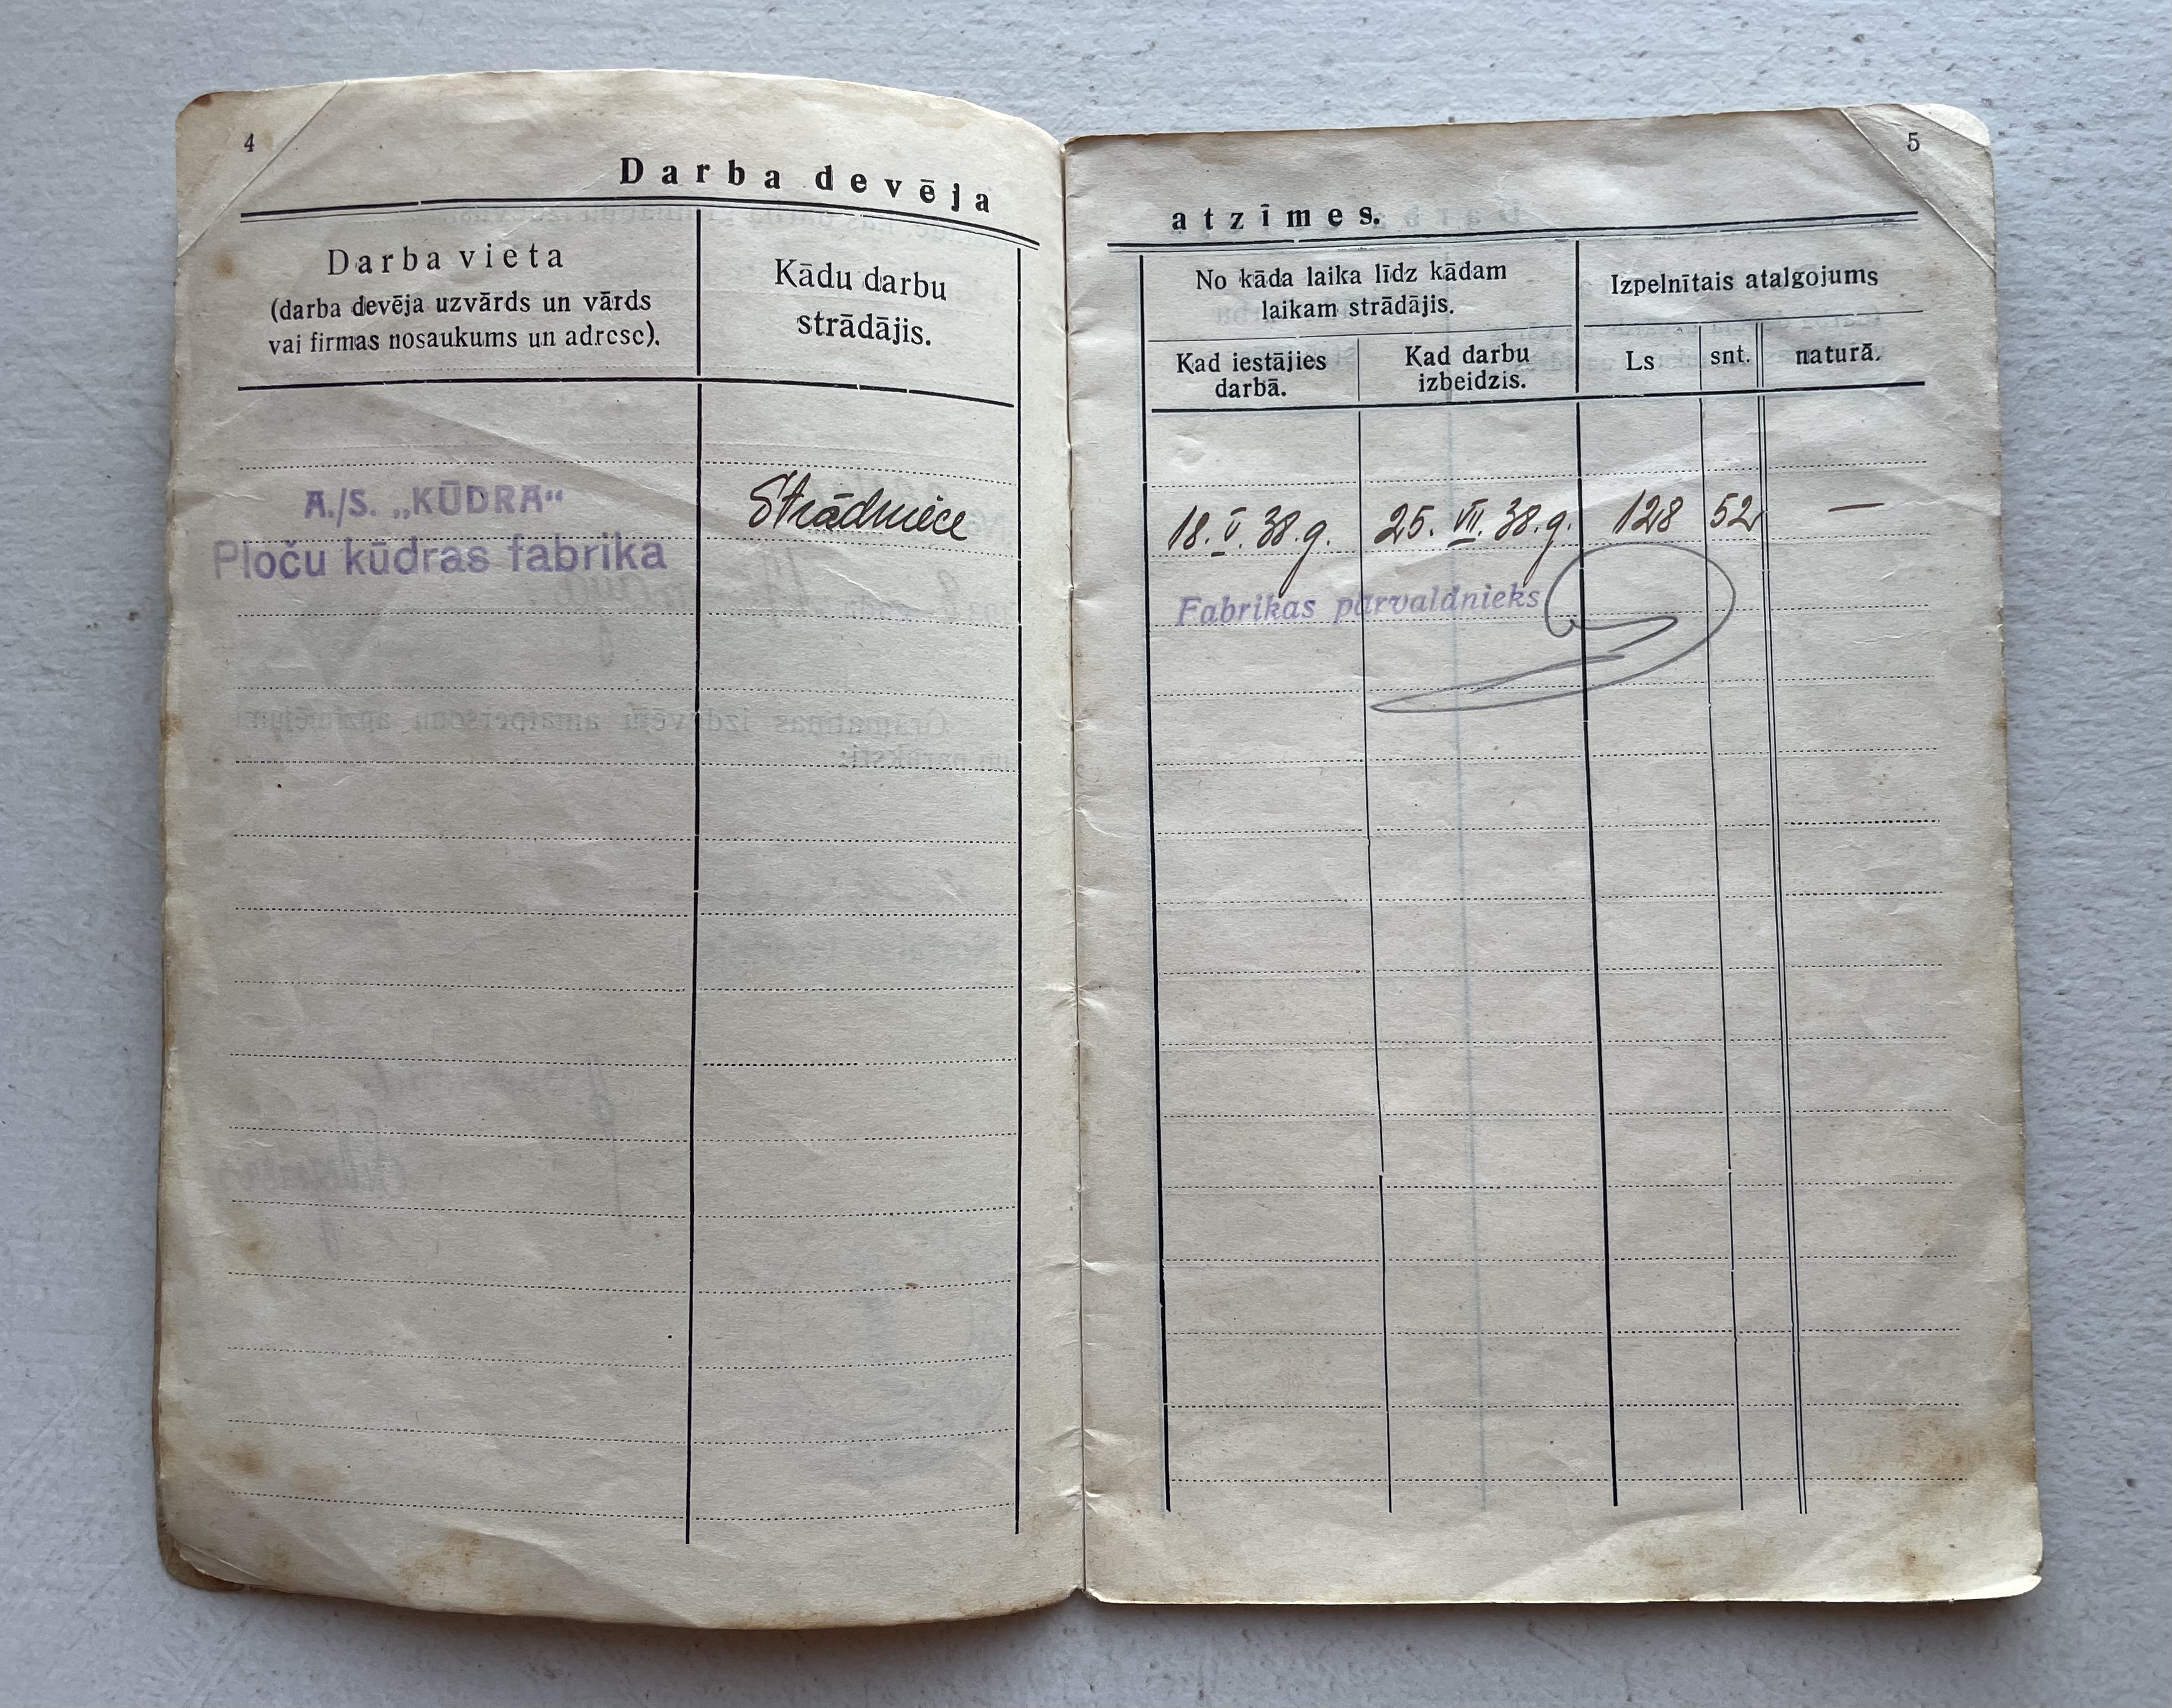 4
Darba devēja
Darba vieta
(darba devēja uzvārds un vārds
vai firmas nosaukums un adrese).
Kādu darbu
strādājis.
A./S. „KŪDRA“
Ploču kūdras fabrika
Strādniece
5
atzīmes.
No kāda laika līdz kādam
laikam strādājis.
Izpelnītais atalgojums
Kad iestājies
darbā.
Kad darbu
izbeidzis.
Ls
snt.
naturā.
18. V. 38. g.
25. VII. 38. g.
128
52
—
Fabrikas pārvaldnieks